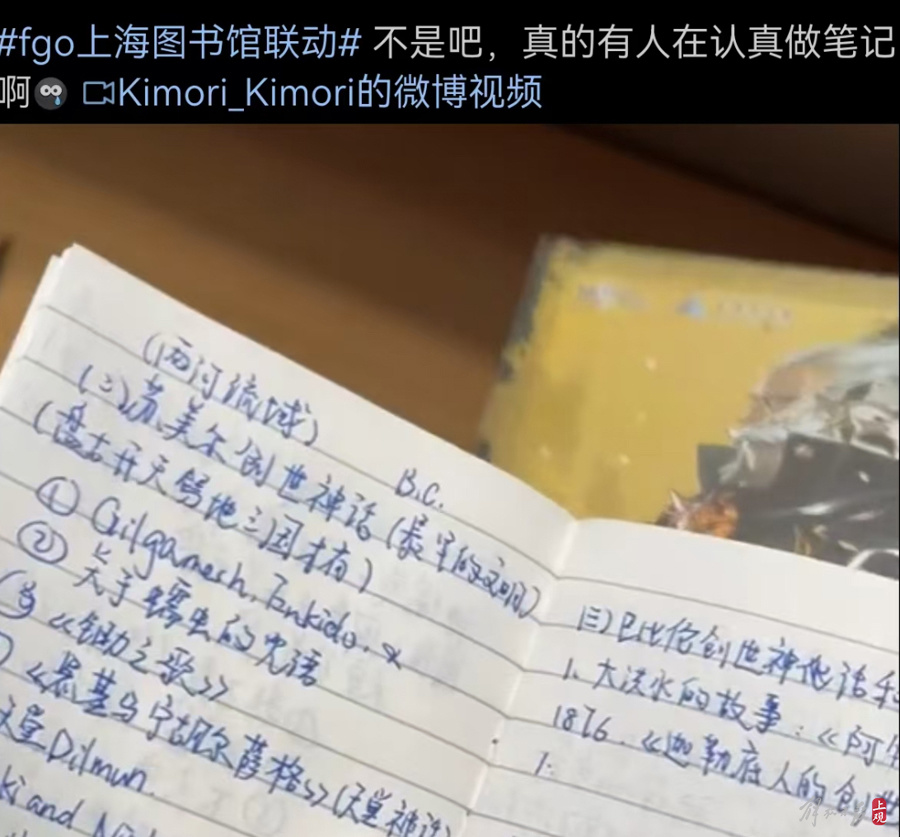 #fgo上海图书馆联动# 不是吧，真的有人在认真做笔记
啊 Kimori_Kimori的微博视频
(两河流域)
(二)苏美尔创世神话(最早的文明)
B.C.
(盘古开天辟地三国才有)
① Gilgamesh, Enkido.
② 关于蠕虫的咒语
《锄之歌》
《恩基与宁胡尔萨格》(天堂神话
天堂Dilmun.
ki and
三)巴比伦创世神话和
1. 大洪水的故事：《阿
1876.《迦勒底人的创世
1.
上观